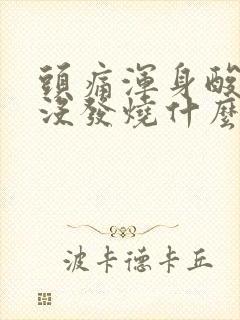 頭痛渾身酸
沒發燒什麼
波卡德卡丘